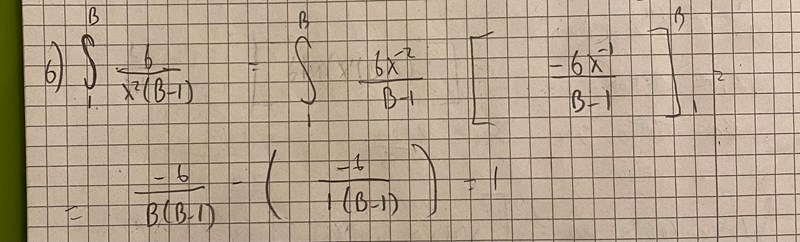 6) ∫₁ᴮ 6/(x²(B-1)) = ∫₁ᴮ 6x⁻²/(B-1) [-6x⁻¹/(B-1)]₁ᴮ =
= -6/(B(B-1)) - (-6/(1(B-1))) = 1